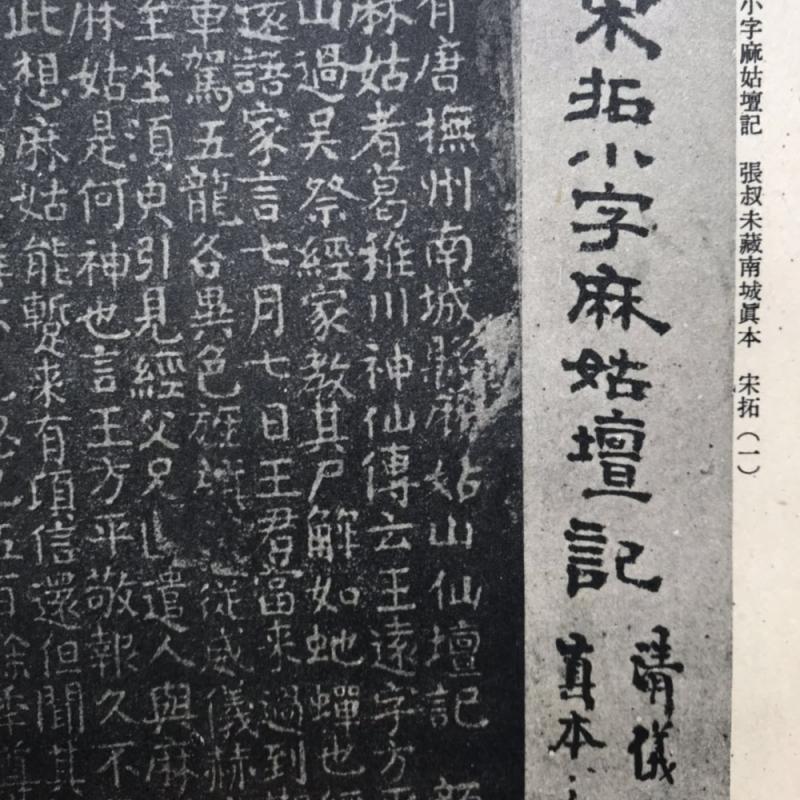 小字麻姑壇記 張叔未藏南城眞本 宋拓(一)
宋拓小字麻姑壇記
清儀
真本
有唐撫州南城縣麻姑山仙壇記 顏
麻姑者葛稚川神仙傳云王遠字方平
山過吳祭經家教其尸解如虵蟬也經
遠語家言七月七日王君當来過到期
車駕五龍各異色旌旗從威儀赫
至坐須臾引見經父兄遣人與麻
麻姑是何神也言王方平敬報久不
此想麻姑能蹔来有頃信還但聞其
五百餘季尊